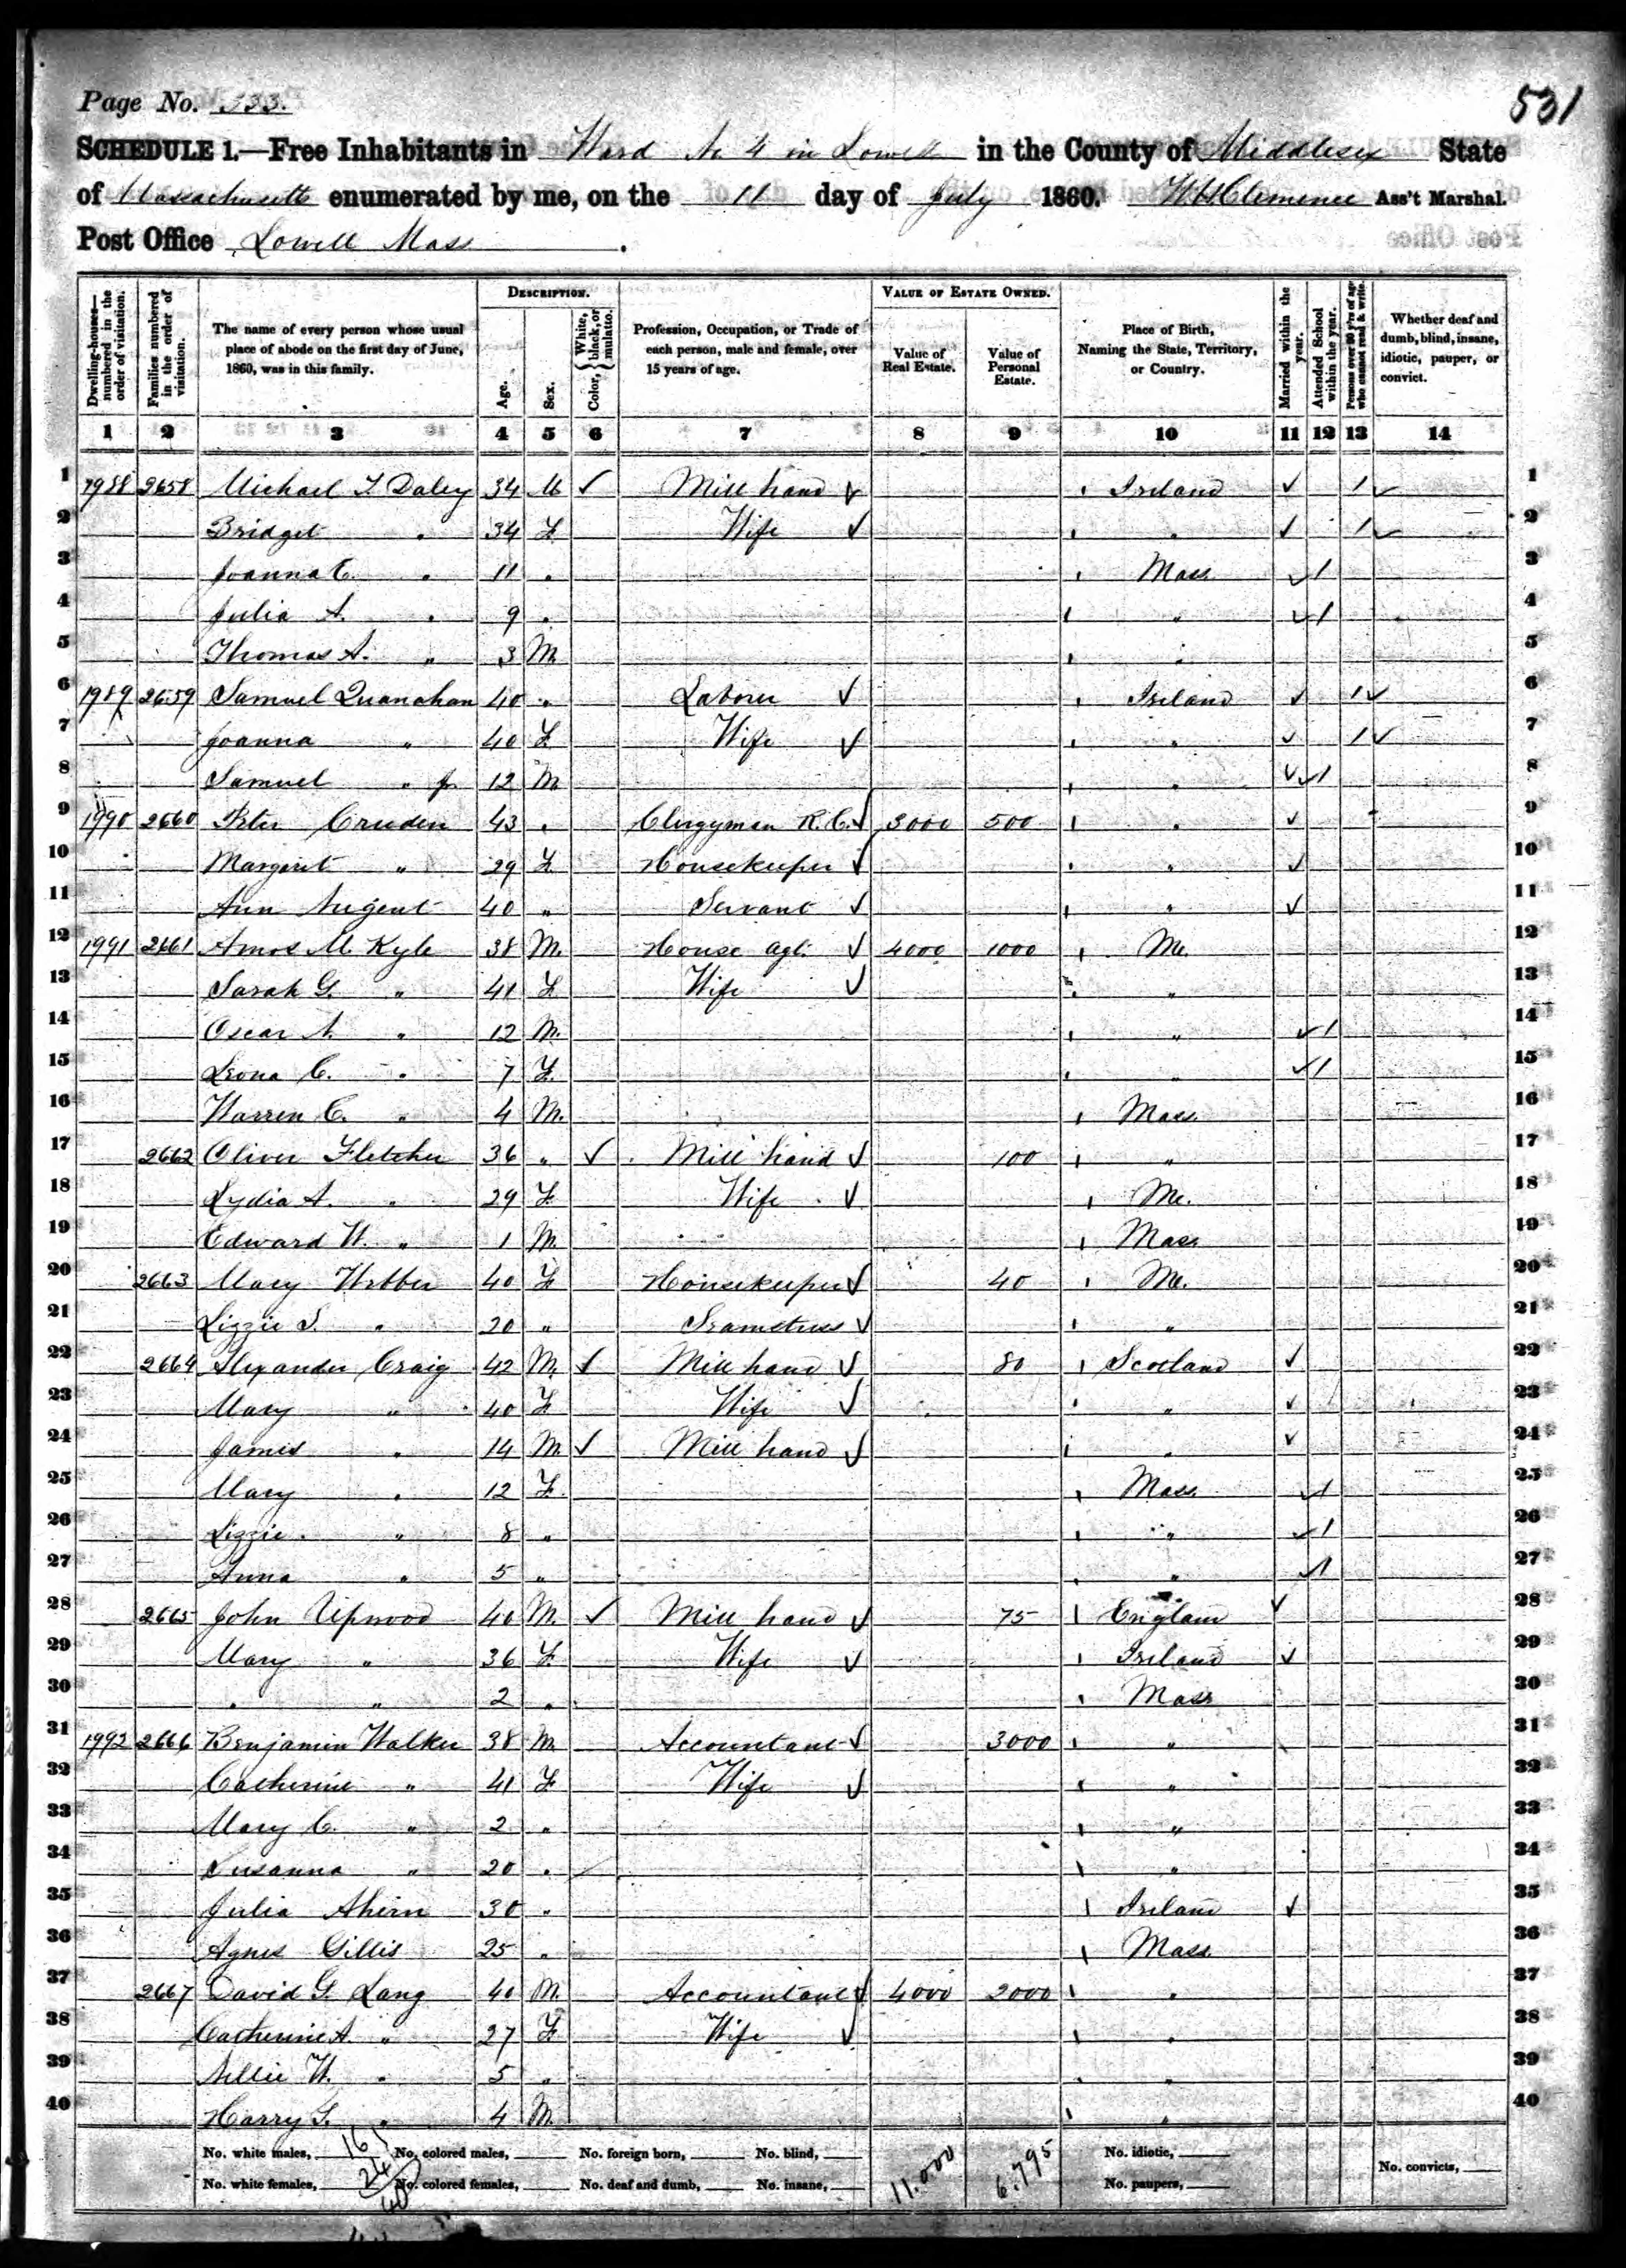 Page No. 533.
531
SCHEDULE 1.—Free Inhabitants in Ward No 4 in Lowell in the County of Middlesex State
of Massachusetts enumerated by me, on the 11 day of July 1860. W H Clemence Ass't Marshal.
Post Office Lowell Mass.
Dwelling-houses—numbered in the order of visitation.
Families numbered in the order of visitation.
The name of every person whose usual place of abode on the first day of June, 1860, was in this family.
DESCRIPTION.
Age.
Sex.
Color, { White, black, or mulatto.
Profession, Occupation, or Trade of each person, male and female, over 15 years of age.
VALUE OF ESTATE OWNED.
Value of Real Estate.
Value of Personal Estate.
Place of Birth, Naming the State, Territory, or Country.
Married within the year.
Attended School within the year.
Persons over 20 y'rs of age who cannot read & write.
Whether deaf and dumb, blind, insane, idiotic, pauper, or convict.
1 2 3 4 5 6 7 8 9 10 11 12 13 14
1 1988 2658 Michael T Daley 34 M ✓ Mill hand ✓ Ireland ✓ 1 ✓ 1
2 Bridget " 34 F Wife ✓ " ✓ 1 ✓ 2
3 Joanna C. " 11 " Mass ✓ 1 3
4 Julia A. " 9 " " ✓ 1 4
5 Thomas A. " 3 M " 5
6 1989 2659 Samuel Quanahan 40 " Laborer ✓ Ireland ✓ 1 ✓ 6
7 Joanna " 40 F Wife ✓ " ✓ 1 ✓ 7
8 Samuel " Jr 12 M " ✓ ✓ 1 8
9 1990 2660 Peter Cruden 43 " Clergyman R.C. ✓ 3000 500 " ✓ 9
10 Margaret " 29 F Housekeeper ✓ " ✓ 10
11 Ann Nugent 40 " Servant ✓ " ✓ 11
12 1991 2661 Amos M. Kyle 38 M. House agt. ✓ 4000 1000 Me. 12
13 Sarah G. " 41 F Wife ✓ " 13
14 Oscar A. " 12 M. " ✓ 1 14
15 Leona C. " 7 F. " ✓ 1 15
16 Warren C. " 4 M. Mass 16
17 2662 Oliver Fletcher 36 " ✓ Mill hand ✓ 100 " 17
18 Lydia A. " 29 F. Wife ✓ Me. 18
19 Edward W. " 1 M. Mass 19
20 2663 Mary Webber 40 F Housekeeper ✓ 40 Me. 20
21 Lizzie S. " 20 " Seamstress ✓ " 21
22 2664 Alexander Craig 42 M, ✓ Mill hand ✓ 80 Scotland ✓ 22
23 Mary " 40 F Wife ✓ " ✓ 23
24 James " 14 M ✓ Mill hand ✓ " ✓ 24
25 Mary " 12 F. Mass ✓ 1 25
26 Lizzie " 8 " " ✓ 1 26
27 Anna " 5 " " ✓ 1 27
28 2665 John Upwood 40 M. ✓ Mill hand ✓ 75 England ✓ 28
29 Mary " 36 F. Wife ✓ Ireland ✓ 29
30 " " 2 " Mass 30
31 1992 2666 Benjamin Walker 38 M Accountant ✓ 3000 " 31
32 Catherine " 41 F Wife ✓ " 32
33 Mary C. " 2 " " 33
34 Susanna " 20 " " 34
35 Julia Ahern 30 " Ireland ✓ 35
36 Agnes Gillis 25 " Mass 36
37 2667 David G. Lang 40 M. Accountant ✓ 4000 2000 " 37
38 Catherine A. " 27 F Wife ✓ " 38
39 Nellie W. " 5 " " 39
40 Harry S. " 4 M. " 40
No. white males, 16 No. colored males, No. foreign born, No. blind, 11.000 6.795 No. idiotic,
No. white females, 24 No. colored females, No. deaf and dumb, No. insane, No. paupers, No. convicts,
40